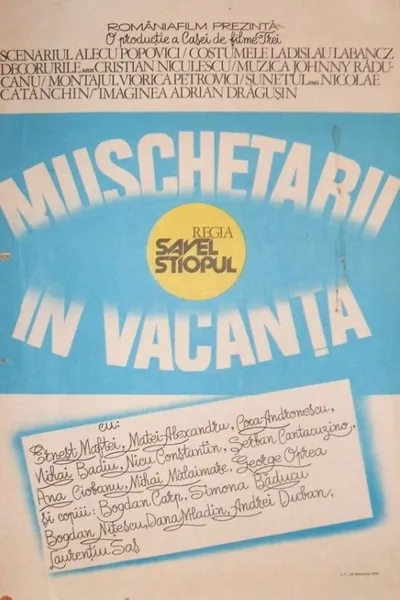 ROMÂNIAFILM PREZINTĂ
O producţie a Casei de filme Trei
SCENARIUL ALECU POPOVICI / COSTUMELE LADISLAU LABANCZ
DECORURILE ARH CRISTIAN NICULESCU / MUZICA JOHNNY RĂDU-
CANU / MONTAJUL VIORICA PETROVICI / SUNETUL ING. NICOLAE
CATANCHIN / IMAGINEA ADRIAN DRĂGUŞIN
MUSCHETARII
REGIA
SAVEL
STIOPUL
IN VACANŢA
cu:
Ernest Maftei, Matei Alexandru, Coca Andronescu,
Mihai Badiu, Nicu Constantin, Şerban Cantacuzino,
Ana Ciobanu, Mihai Mălaimare, George Oprea
şi copiii: Bogdan Carp, Simona Răducu
Bogdan Niţescu, Dana Mladin, Andrei Duban,
Laurenţiu Sas